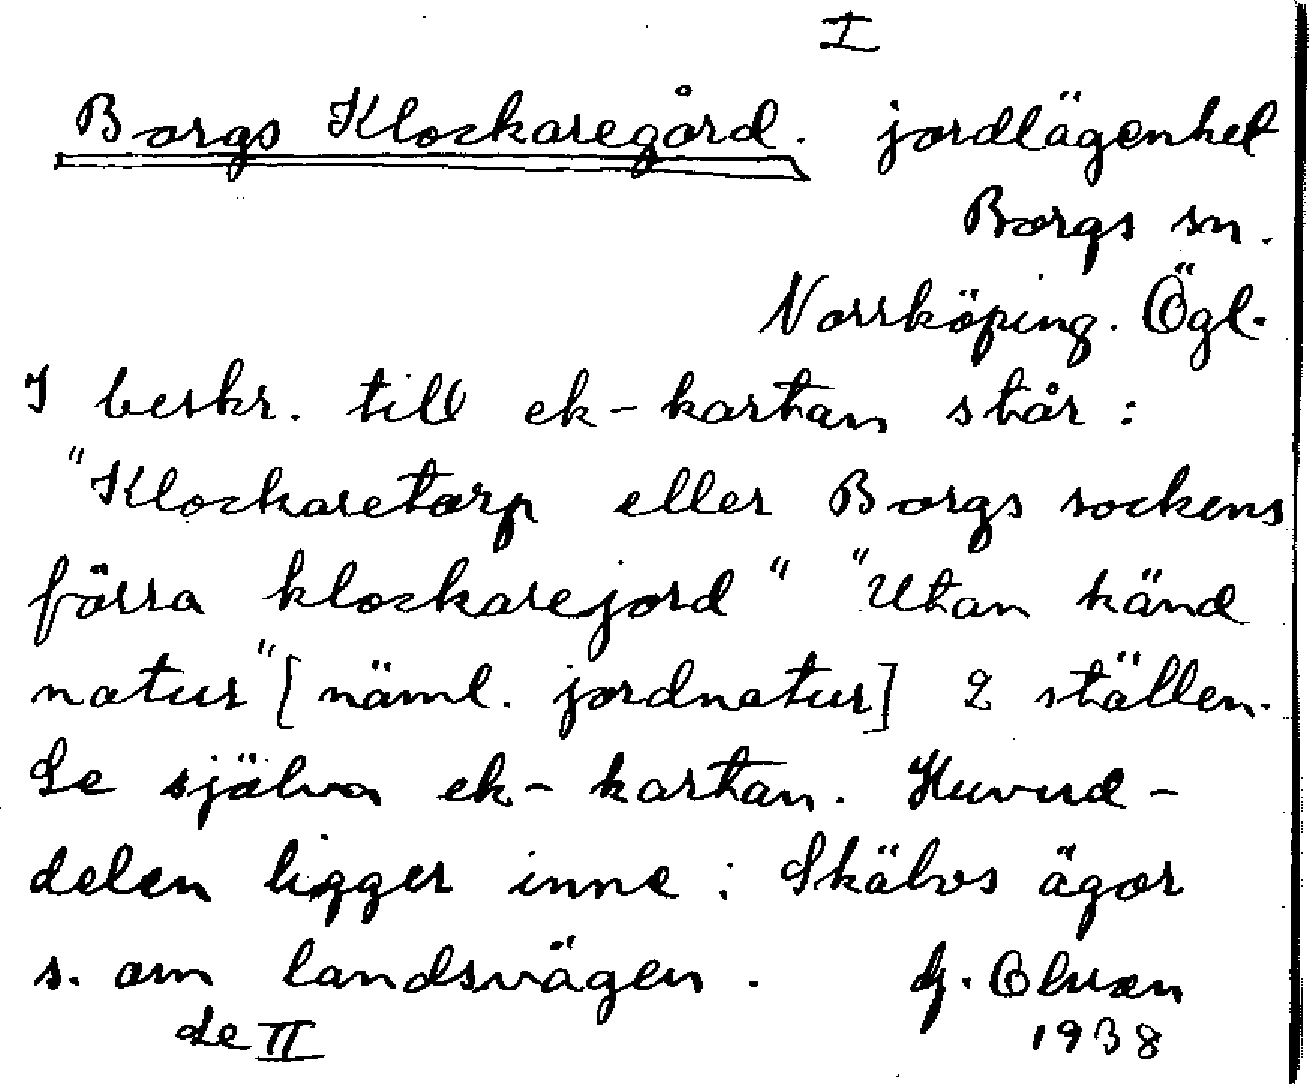 I
Borgs Klockaregård. jordlägenhet
Borgs sn.
Norrköping. Ögl.
I beskr. till ek-kartan står:
"Klockaretorp eller Borgs sockens
förra klockarejord" "Utan känd
natur" [näml. jordnatur] 2 ställen.
Se själva ek-kartan. Huvud-
delen ligger inne i Skälvs ägor
s. om landsvägen. G. Olsson
Se II 1938